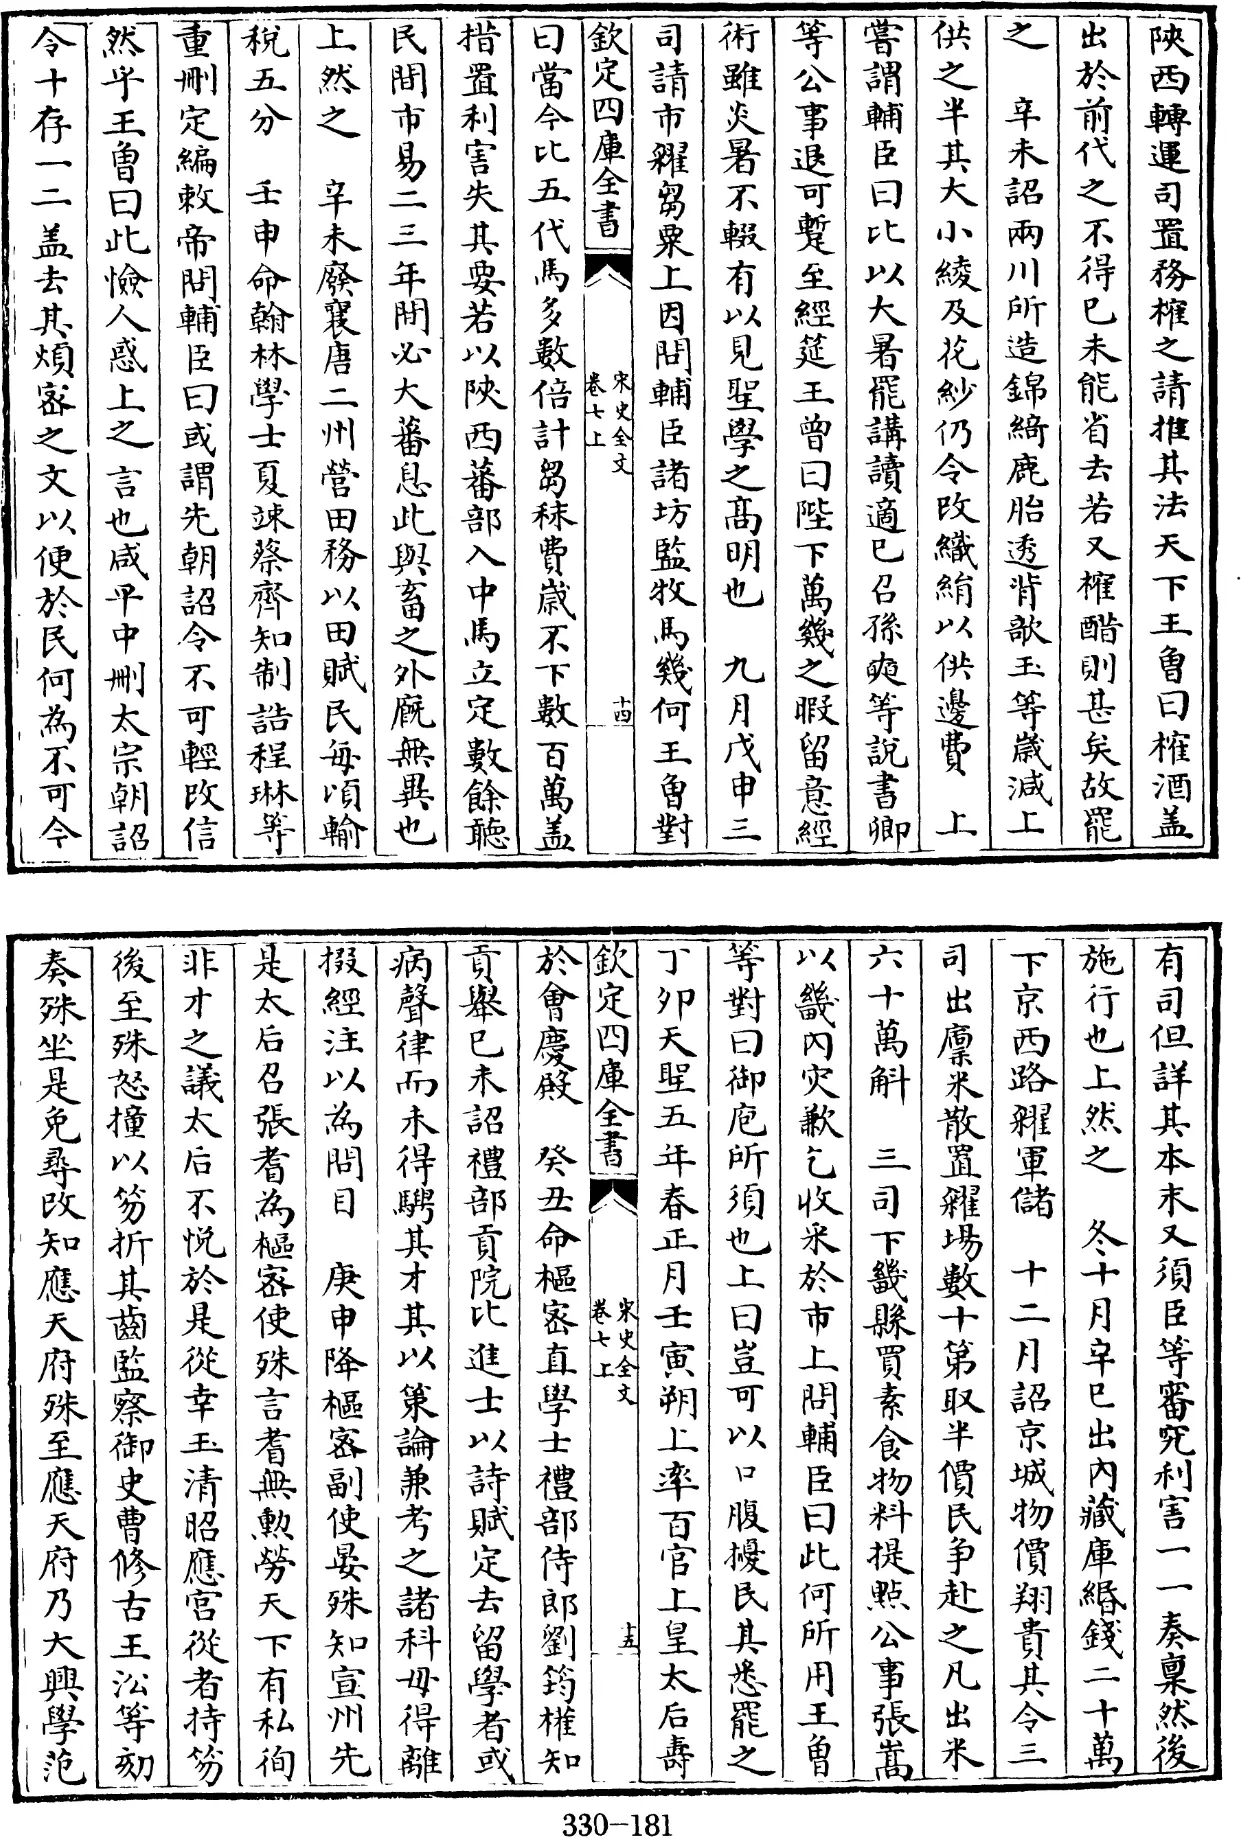 陜西轉運司置務榷之請推其法天下王曾曰榷酒盖
出於前代之不得已未能省去若又榷醋則甚矣故罷
之　辛未詔兩川所造錦綺鹿胎透背欹正等歲減上
供之半其大小綾及花紗仍令改織絹以供邊費　上
嘗謂輔臣曰比以大暑罷講讀適已召孫奭等說書卿
等公事退可蹔至經筵王曾曰陛下萬幾之暇留意經
術雖炎暑不輟有以見聖學之髙明也　九月戊申三
司請市糴芻粟上因問輔臣諸坊監牧馬幾何王曾對
欽定四庫全書
宋史全文
卷七上
十四
曰當今比五代馬多數倍計芻秣費歲不下數百萬盖
措置利害失其要若以陜西蕃部入中馬立定數餘聴
民間市易二三年間必大蕃息此與畜之外廐無異也
上然之　辛未廢襄唐二州營田務以田賦民每頃輸
稅五分　壬申命翰林學士夏竦蔡齊知制誥程琳等
重刪定編敕帝問輔臣曰或謂先朝詔令不可輕改信
然乎王曾曰此憸人惑上之言也咸平中刪太宗朝詔
令十存一二盖去其煩宻之文以便於民何為不可今
有司但詳其本末又須臣等審究利害一一奏稟然後
施行也上然之　冬十月辛巳出內藏庫緡錢二十萬
下京西路糴軍儲　十二月詔京城物價翔貴其令三
司出廪米散置糴場數十第取半價民争赴之凡出米
六十萬斛　三司下畿縣買素食物料提㸃公事張嵩
以畿內灾歉乞收采於市上問輔臣曰此何所用王曾
等對曰御庖所須也上曰豈可以口腹擾民其悉罷之
丁夘天聖五年春正月壬寅朔上率百官上皇太后壽
欽定四庫全書
宋史全文
卷七上
十五
於會慶殿　癸丑命樞宻直學士禮部侍郎劉筠權知
貢舉已未詔禮部貢院比進士以詩賦定去留學者或
病聲律而未得騁其才其以策論兼考之諸科毋得離
掇經注以為問目　庚申降樞宻副使晏殊知宣州先
是太后召張耆為樞宻使殊言耆無勲勞天下有私徇
非才之議太后不悅於是從幸玉清昭應宫從者持笏
後至殊怒撞以笏折其齒監察御史曹修古王沿等劾
奏殊坐是免尋改知應天府殊至應天府乃大興學范
330-181